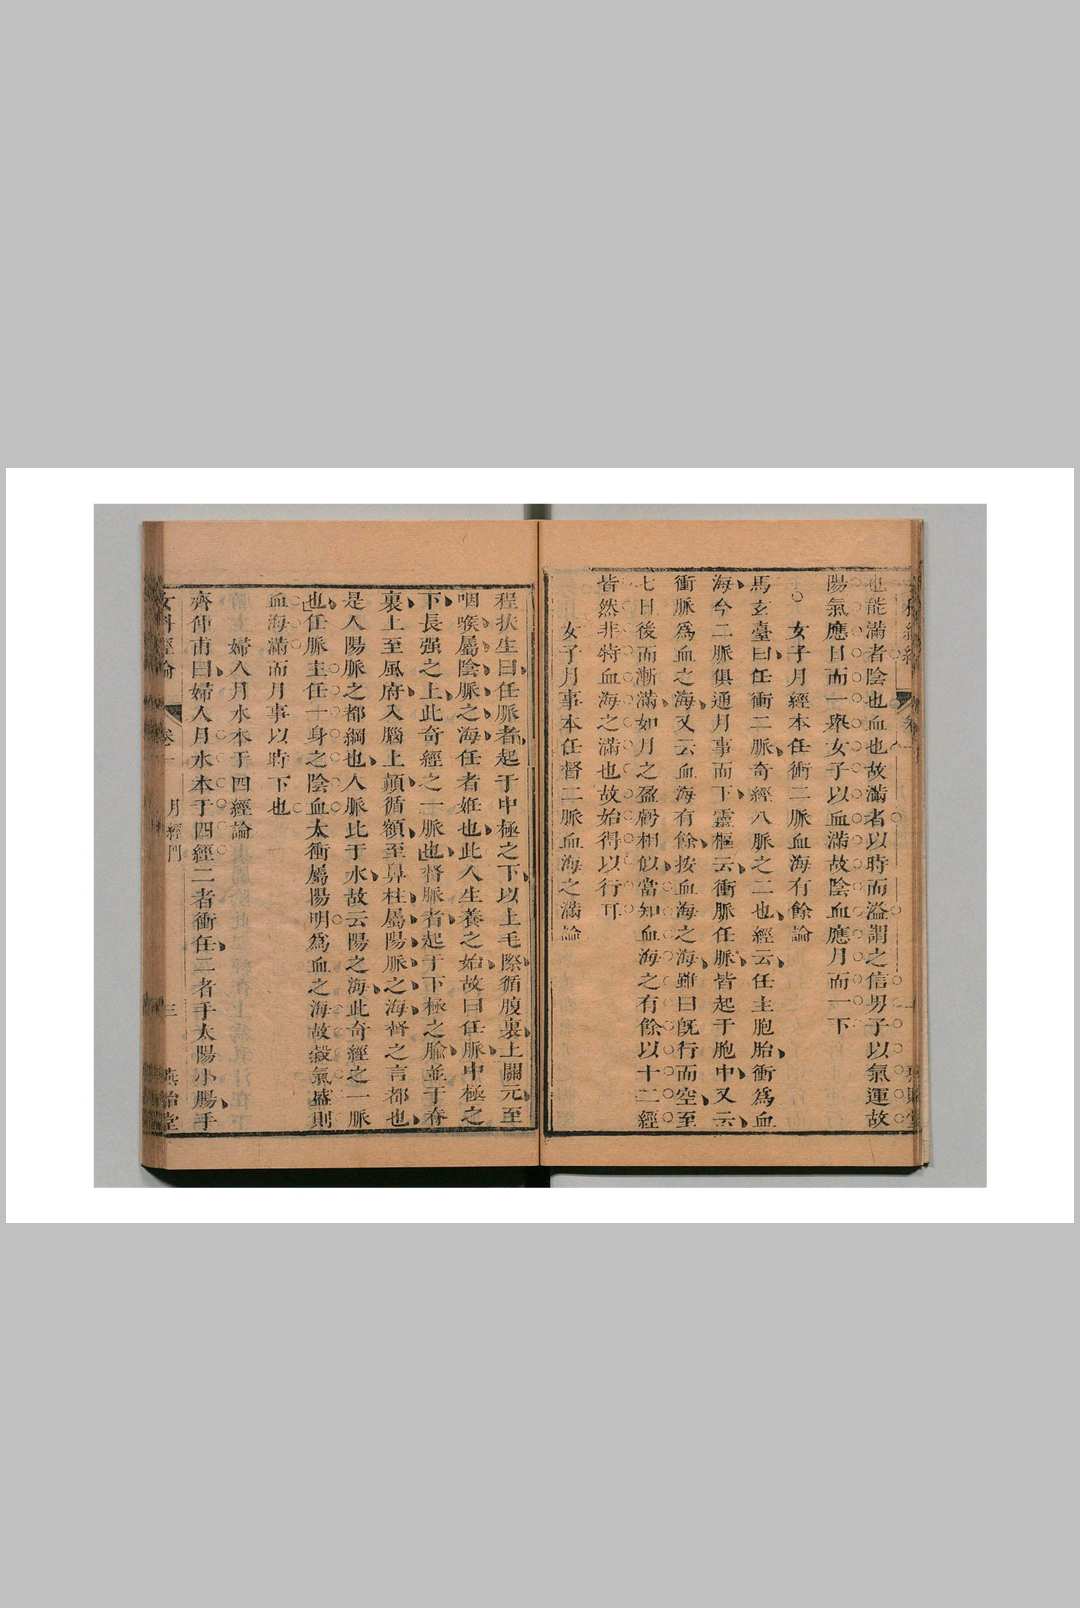 也能滿者陰也血也故滿者以時而溢謂之信男子以氣運故
陽氣應日而一舉女子以血滿故陰血應月而一下
女子月經本任衝二脈血海有餘論
馬玄臺曰任衝二脈奇經八脈之二也經云任主胞胎衝爲血
海今二脈俱通月事而下靈樞云衝脈任脈皆起于胞中又云
衝脈爲血之海又云血海有餘按血海之海雖曰旣行而空至
七日後而漸滿如月之盈虧相似當知血海之有餘以十二經
皆然非特血海之滿也故始得以行耳
女子月事本任督二脈血海之滿論
程扶生曰任脈者起于中極之下以上毛際循腹裏上關元至
咽喉屬陰脈之海任者姙也此人生養之始故曰任脈中極之
下長强之上此奇經之一脈也督脈者起于下極之腧並于脊
裏上至風府入腦上顚循額至鼻柱屬陽脈之海督之言都也
是人陽脈之都綱也人脈比于水故云陽之海此奇經之一脈
也任脈主任一身之陰血太衝屬陽明爲血之海故穀氣盛則
血海滿而月事以時下也
婦人月水本于四經論
齊仲甫曰婦人月水本于四經二者衝任二者手太陽小腸手
女科經論 卷一 月經門 三 燕貽堂